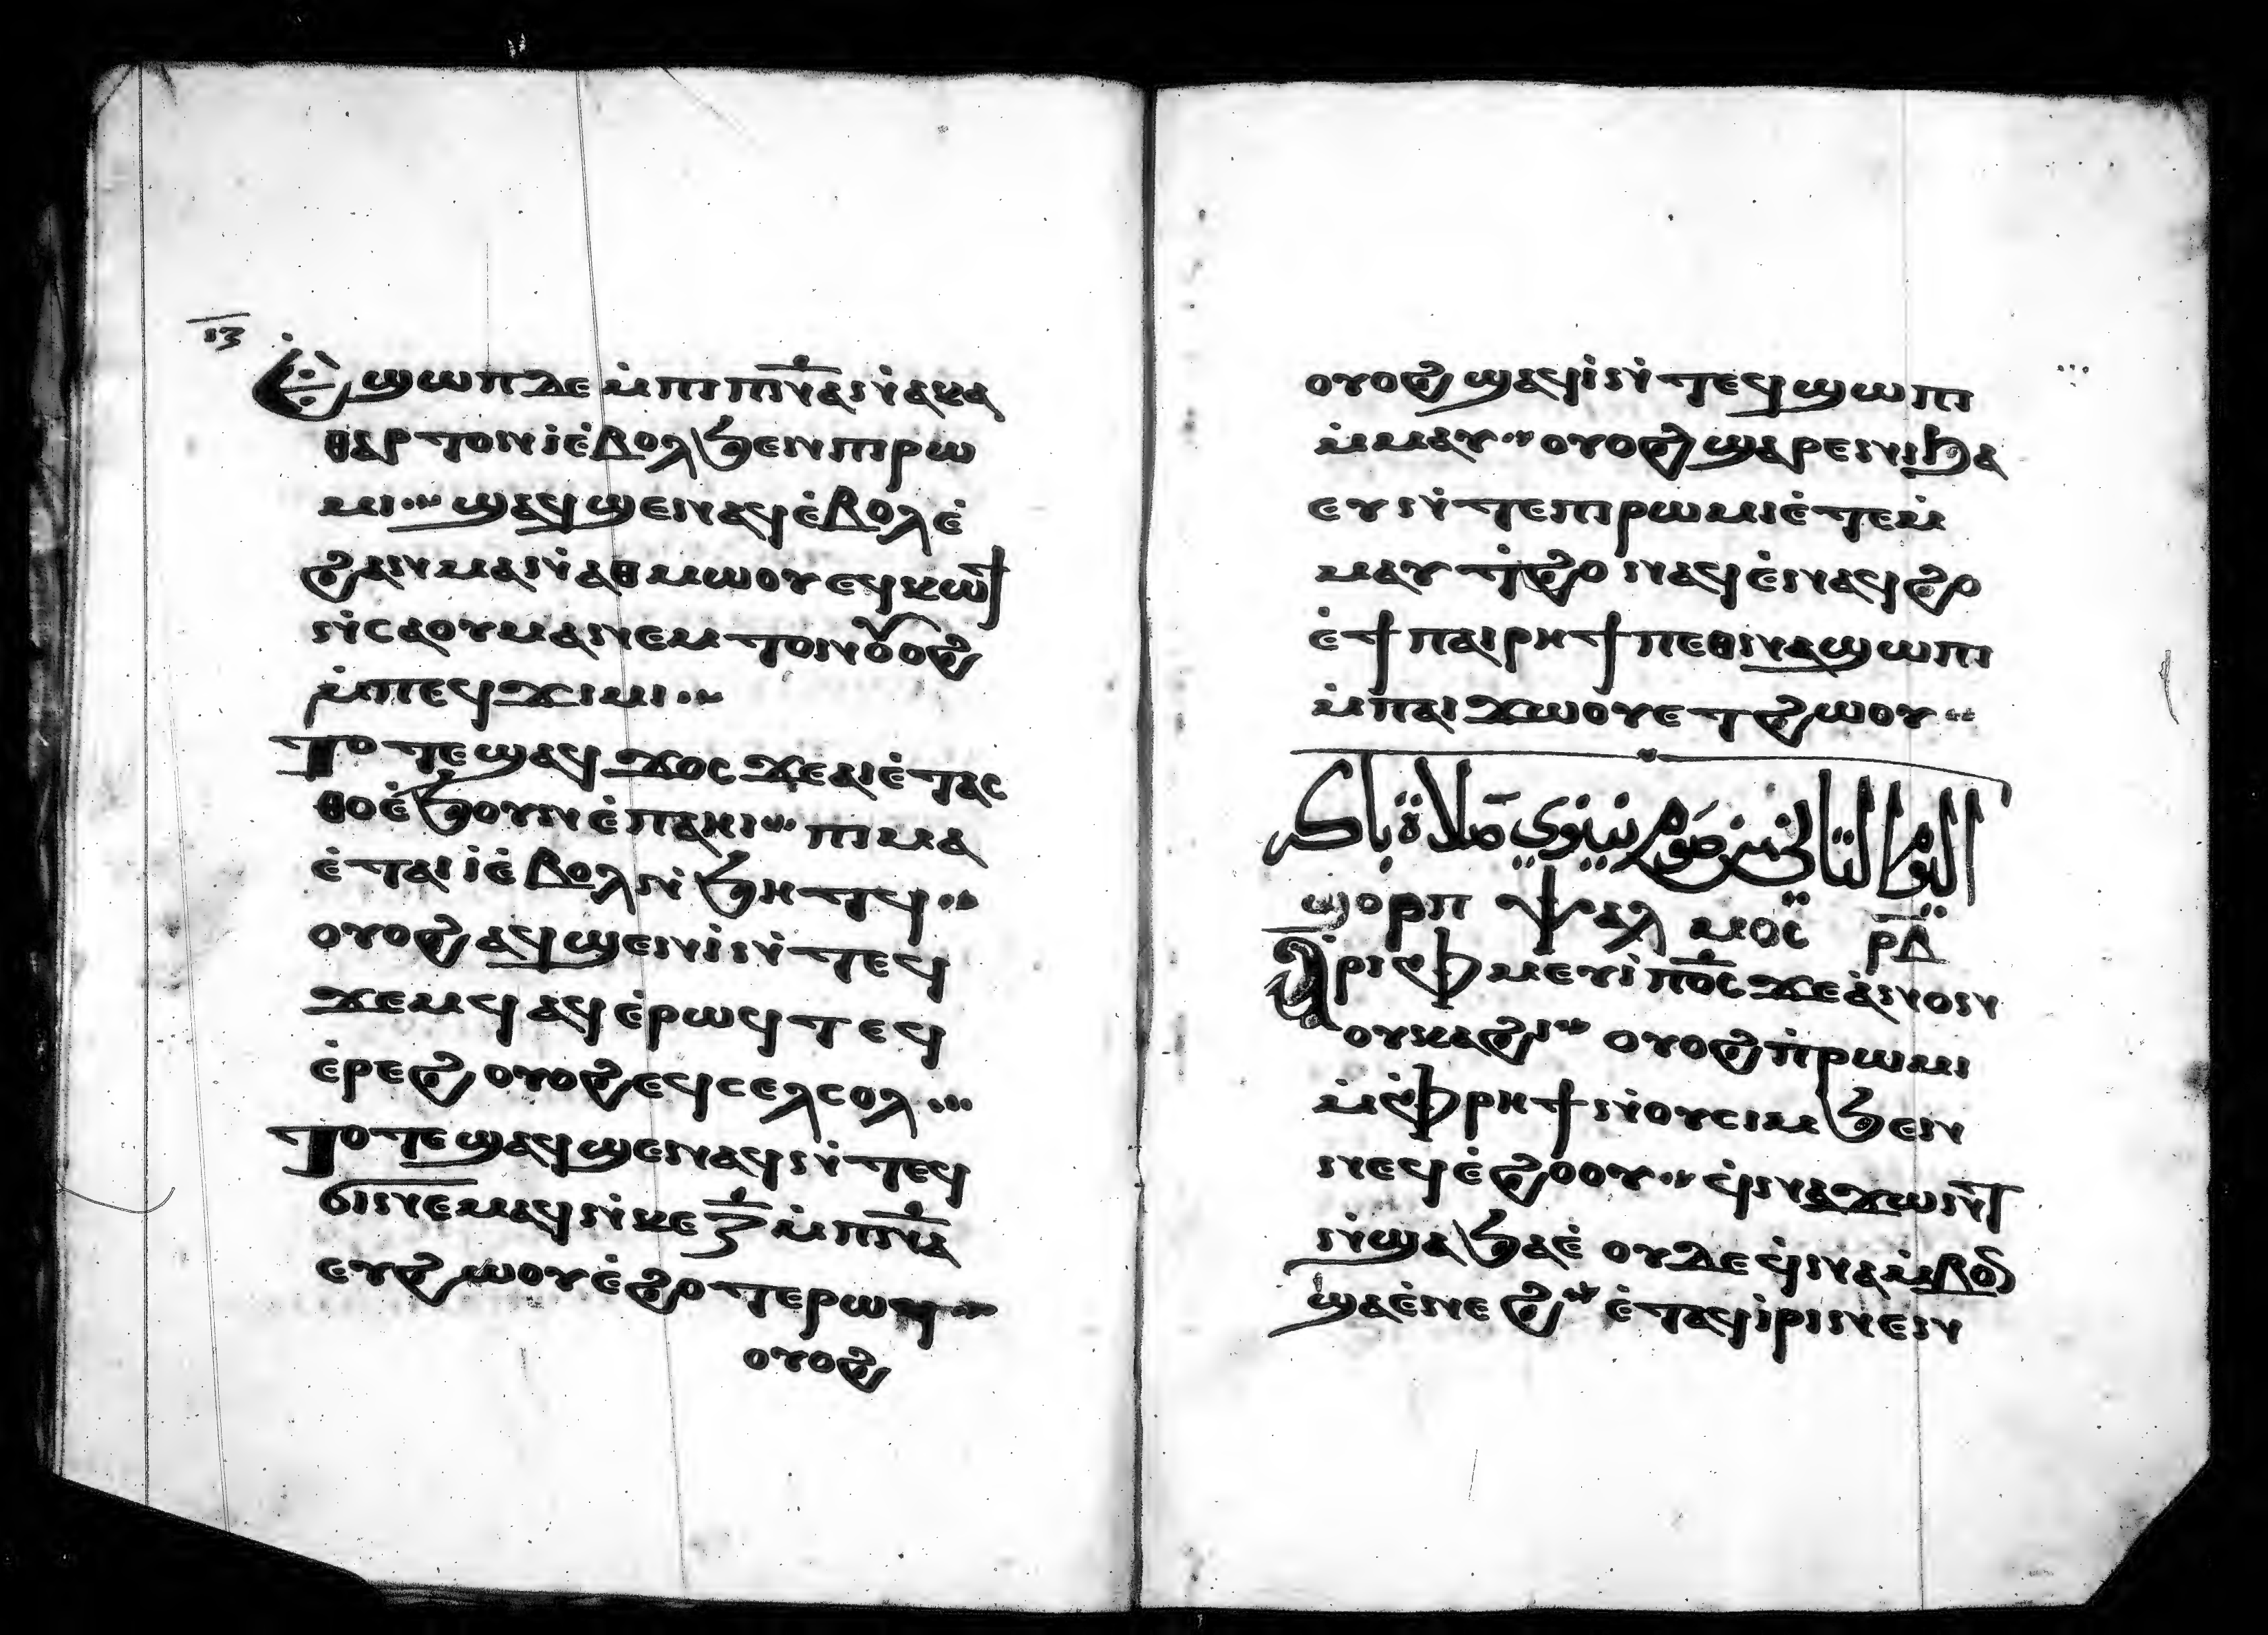 ⲓⲍ
Ⲉ̇ϣⲱⲡ ⲇⲉ ⲙ̇ⲡⲓ ⲡⲛ̅ⲁ̅ ⲛ̇ⲁⲕⲁ
ⲑⲁⲣⲧⲟⲛ ⲓ̀ ⲉ̇ⲃⲟⲗ ϧⲉⲛ ⲡⲓⲣⲱ
ⲙⲓ·· ϣⲁϥϣⲉⲛⲁϥ ⲉ̇ⲃⲟⲗ ⲉ̇
ϩⲁⲛⲙⲁ ⲛ̇ⲁⲑⲙⲱⲟⲩ ⲉϥⲕⲱϯ
ⲛ̇ⲥⲁ ⲟⲩⲙⲁ ⲛ̇ⲉⲙⲧⲟⲛ ⲟⲩⲟϩ
ⲙ̇ⲡⲉϥϫⲓⲙⲓ··
Ⲧⲟⲧⲉ ϣⲁϥϫⲟⲥ ϫⲉ ⲁⲓⲉ̇ⲧⲁⲥ
ⲑⲟ ⲉ̇ϧⲟⲩⲛ ⲉ̇ⲡⲁⲏⲓ·· ⲡⲓⲙⲁ
ⲉ̇ⲧⲁⲓ ⲓ̇ ⲉ̇ⲃⲟⲗ ⲛ̇ϧⲏⲧϥ··
ⲟⲩⲟϩ ⲁϥϣⲉⲛ ⲓ̇ ⲛ̇ⲧⲉϥ
ϫⲉⲙϥ ⲁϥⲉ̇ⲣⲱϥⲧ ⲉϥ
ⲉ̇ⲣⲉϩ ⲟⲩⲟϩ ⲉϥⲥⲉⲗⲥⲱⲗ···
Ⲧⲟⲧⲉ ϣⲁϥϣⲉⲛⲁϥ ⲛ̇ⲧⲉϥ
ϭⲓ ⲛⲉⲙⲁϥ ⲛ̇ⲕⲉ ⲍ̅ ⲙ̇ⲡⲛ̅ⲁ̅
ⲉⲩϩⲱⲟⲩ ⲉ̇ϩⲟⲧⲉⲣⲱϥ··
ⲟⲩⲟϩ
ⲟⲩⲟϩ ϣⲁϥⲓ̇ ⲛ̇ⲧⲉϥϣⲱⲡⲓ
ⲙ̇ⲙⲁⲩ·· ⲟⲩⲟϩ ϣⲁⲣⲉ ⲛⲓϧⲁ
ⲉⲩ ⲛ̇ⲧⲉ ⲡⲓⲣⲱⲙⲓ ⲉ̇ⲧⲉⲙ̇
ⲙⲁⲩ ⲧ̇ϩⲟ ⲛⲁϥ ⲉ̇ⲛⲁϥϩⲟ
ⲉ̇ϯ ⲡⲁⲓⲣⲏϯ ⲡⲉⲑⲛⲁϣⲱⲡⲓ
ⲙ̇ⲡⲁⲓϫⲱⲟⲩ ⲉⲧϩⲱⲟⲩ··
اليوم الثاني من صوم نينوي صلاة باكر
ϣⲟⲣⲡ ⲯⲁⲗⲙⲟⲥ ⲣ̅ⲇ̅
Ⲁ̇ⲣⲓⲫⲙⲉⲩⲓ̇ ⲡⲟ̅ⲥ̅ ϫⲉ ⲁ̇ⲛⲟⲛ
ⲟⲩⲕⲁϩⲓ·· ⲟⲩⲟϩ ⲡ̇ⲣⲱⲙⲓ
ⲙ̇ⲫⲣⲏϯ ⲛ̇ⲟⲩⲥⲓⲙ ϧⲉⲛ
ⲛⲉϥⲉ̇ϩⲟⲟⲩ·· ϥ̇ⲛⲁϫⲱⲛⲧ
ⲛ̇ϣⲁϧⲁⲉ̇ ⲟⲩⲇⲉ ϥ̇ⲛⲁⲙ̇ⲃⲟⲛ
ϣⲁ ⲉ̇ⲛⲉϩ·· ⲉ̇ⲧⲁϥⲓ̇ⲣⲓ ⲛⲉⲛ